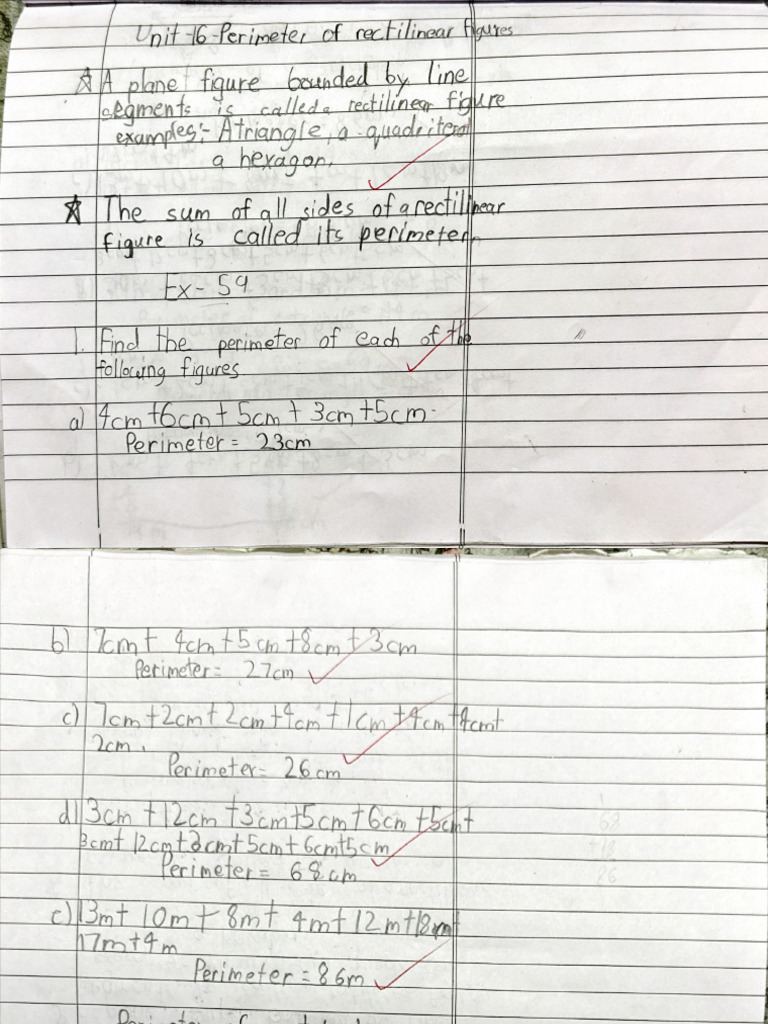 Unit-16-Perimeter of rectilinear figures
A plane figure bounded by line
segments is called a rectilinear figure
examples:- A triangle, a quadriteral
a hexagon.
The sum of all sides of a rectilinear
figure is called its perimeter.
Ex- 59
1. Find the perimeter of each of the
following figures
a) 4cm+6cm+5cm+3cm+5cm.
Perimeter= 23cm
b) 7cm+ 4cm+5cm+8cm+3cm
Perimeter= 27cm
c) 7cm+2cm+2cm+4cm+1cm+4cm+4cm+
2cm.
Perimeter= 26cm
d) 3cm+12cm+3cm+5cm+6cm+5cm+
3cm+12cm+3cm+5cm+6cm+5cm
Perimeter= 68cm
c) 13m+10m+8m+4m+12m+18m+
17m+4m
Perimeter=86m